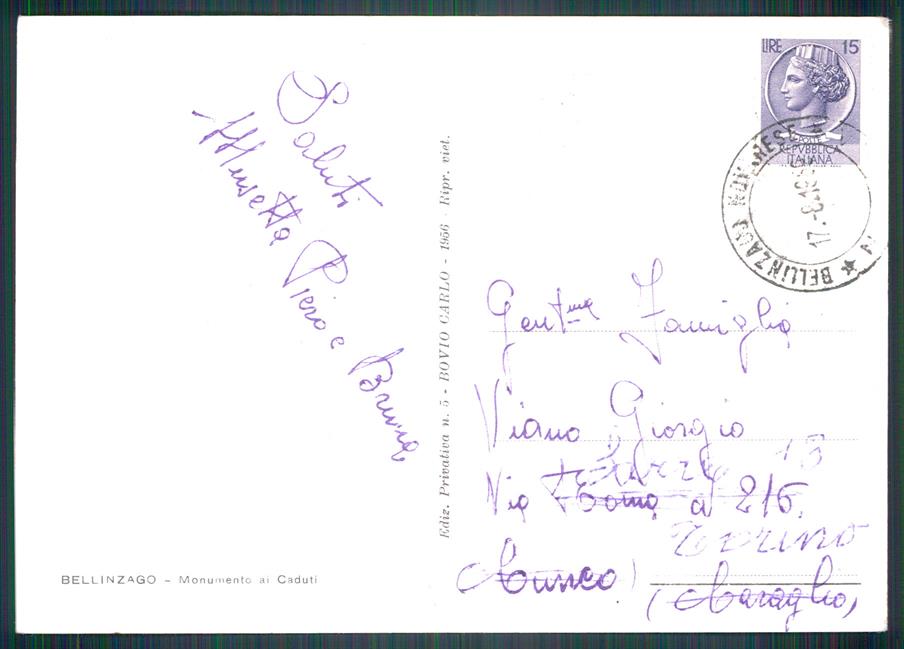 Saluti
Musetta Piero e Bruna
Ediz. Privativa n. 5 - BOVIO CARLO - 1956 - Ripr. viet.
BELLINZAGO - Monumento ai Caduti
LIRE 15
POSTE
REPVBBLICA
ITALIANA
BELLINZAGO NOVARESE
17.-8.
Gent.ma Famiglia
Viano Giorgio
13
Via Roma 216
Torino
Cuneo)
(Caraglio)